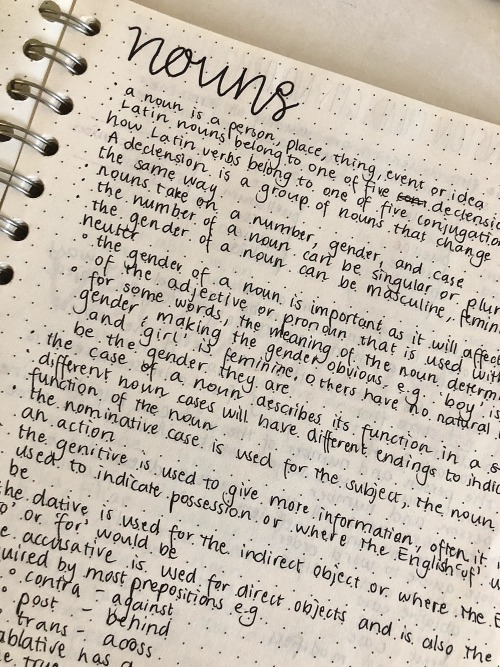 nouns
a noun is a person, place, thing, event or idea
Latin nouns belong to one of five declensio
how Latin verbs belong to one of five conjugation
A declension is a group of nouns that change
the same way
nouns take on a number, gender, and case
the number of a noun can be singular or plur
the gender of a noun can be masculine, femin
neuter
the gender of a noun is important as it will affect
of the adjective or pronoun that is used with
for some words, the meaning of the noun determ
gender, making the gender obvious, e.g. 'boy' is
and 'girl' is feminine, others have no natural
be the gender they are
the case of a noun describes its function in a s
different noun cases will have different endings to indic
function of the noun
the nominative case is used for the subject, the noun
an action
the genitive is used to give more information, often it i
used to indicate possession or where the English 'of' w
be
the dative is used for the indirect object or where the E
to' or for' would be
e accusative is used for direct objects and is also the
uired by most prepositions e.g.
contra - against
post - behind
trans - acoss
ablative has a